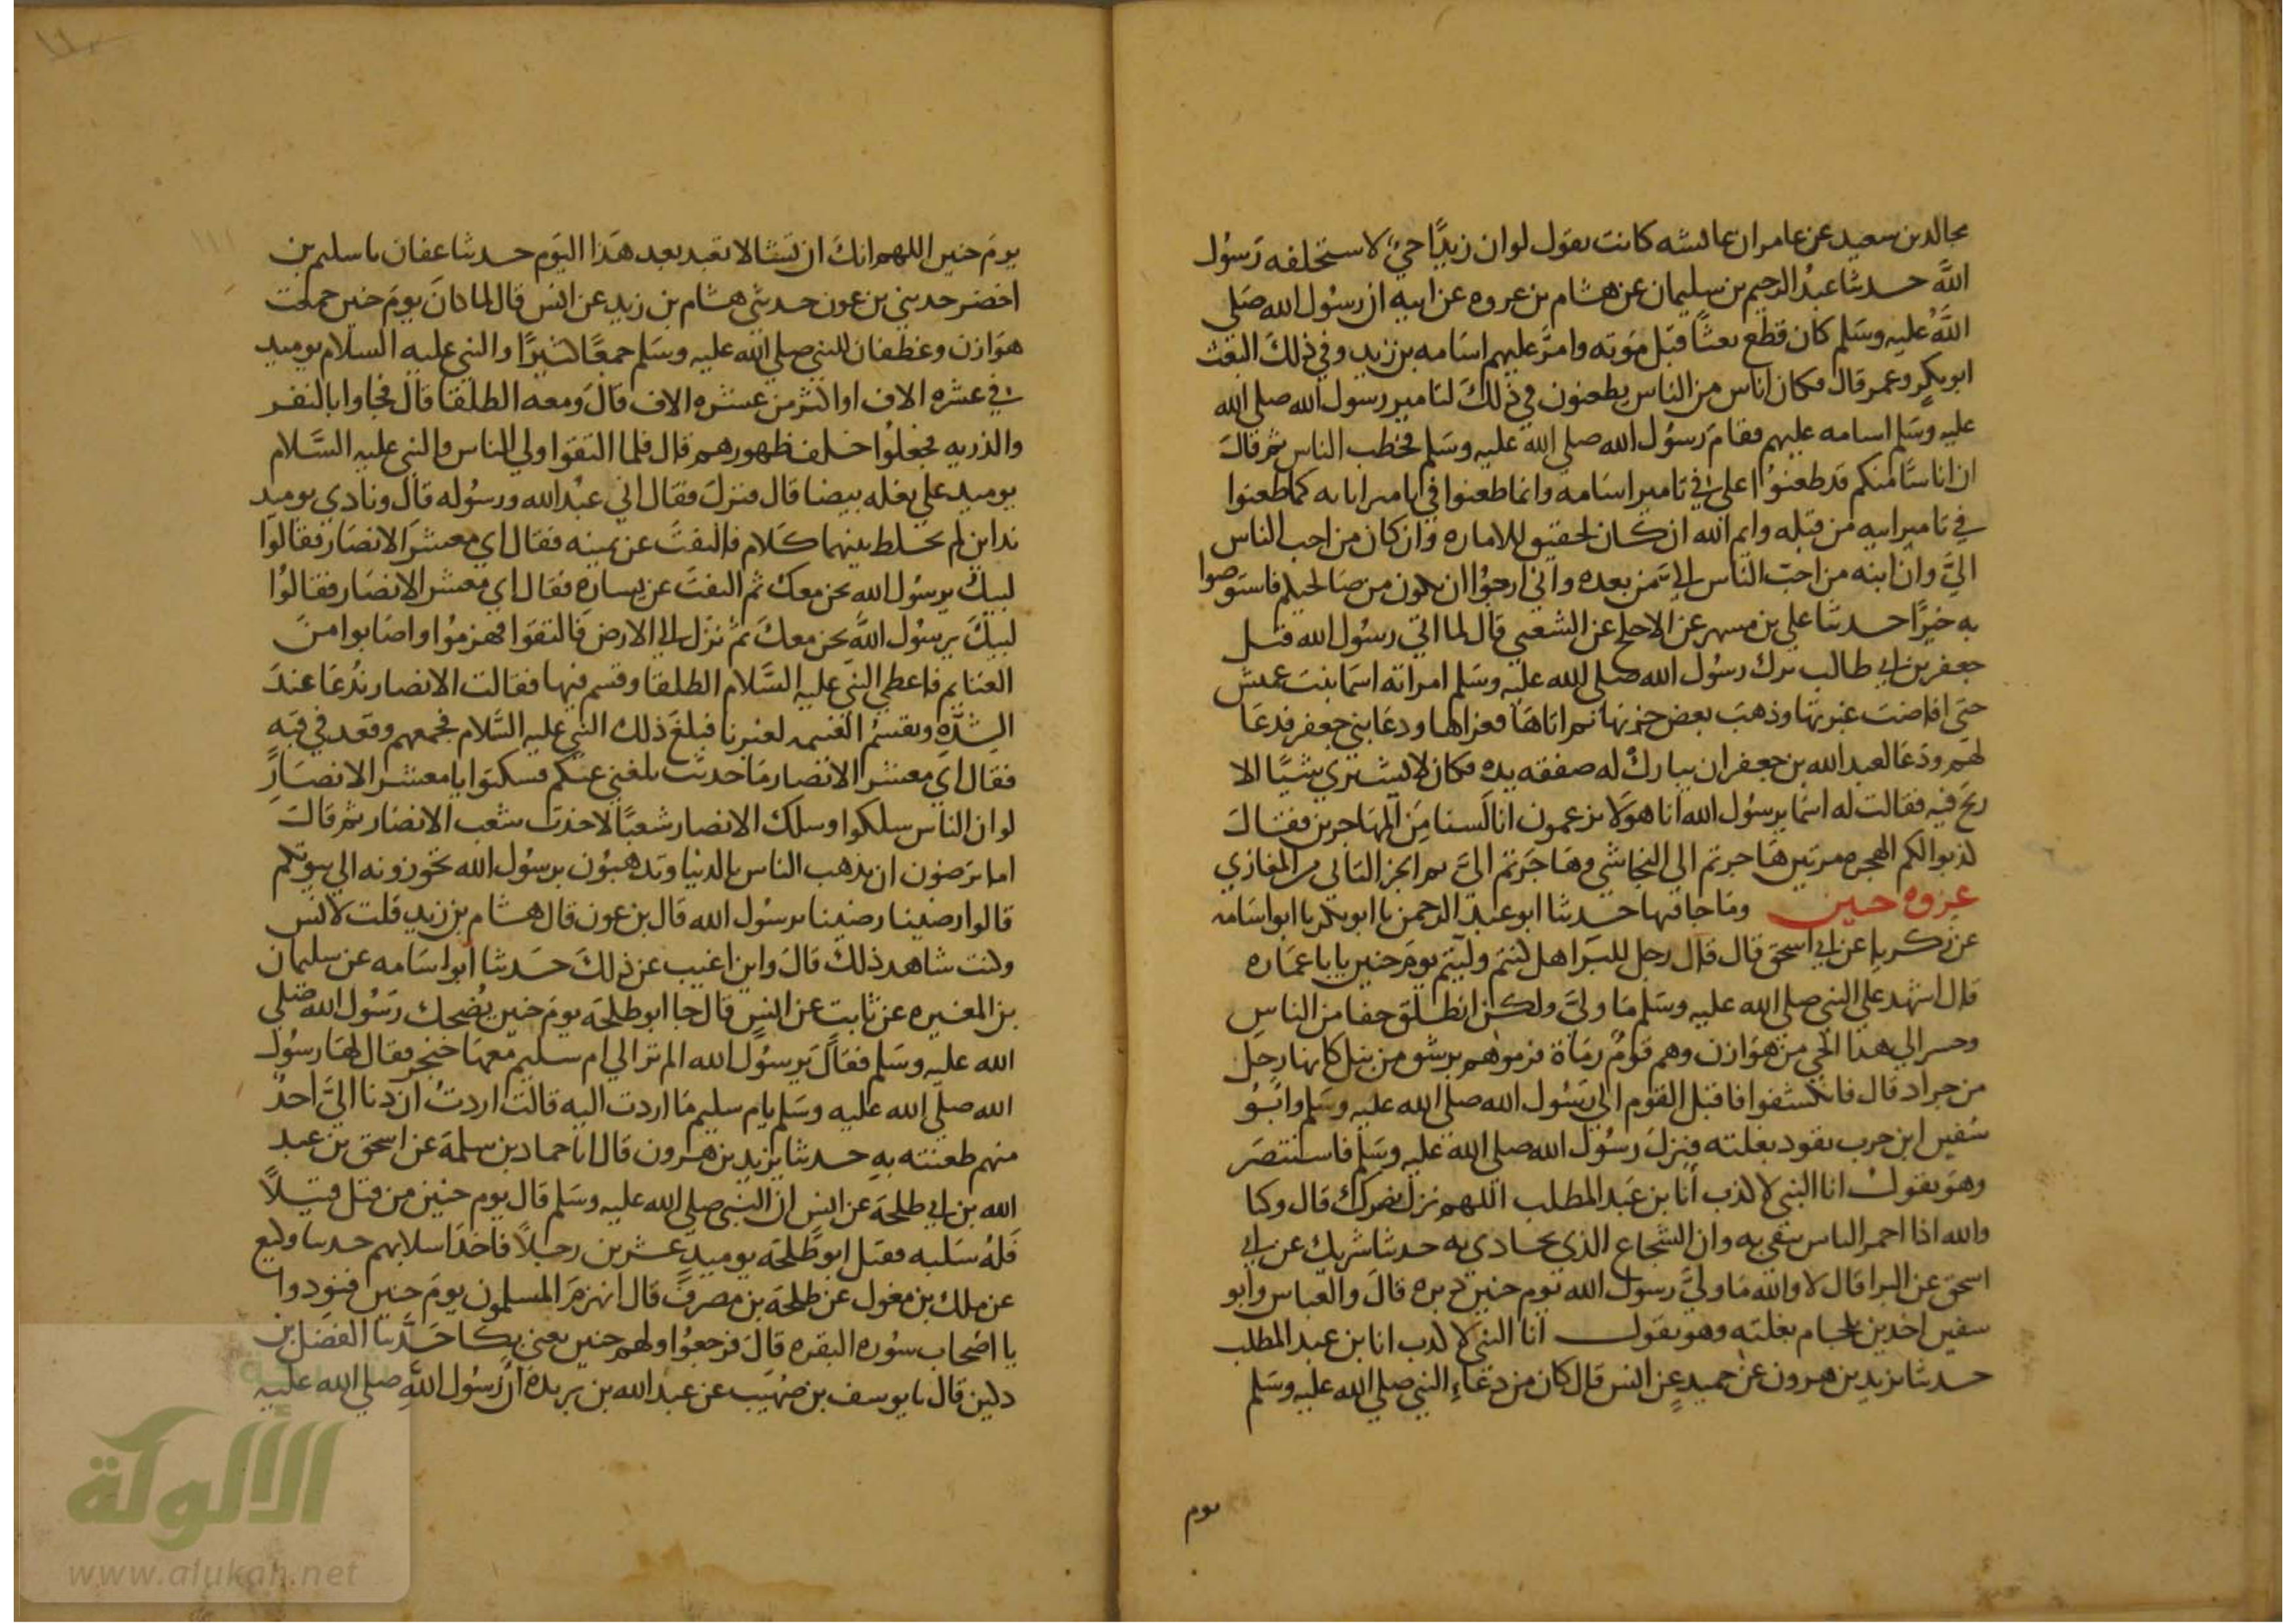 مجالد بن سعيد عن عامر ان عائشه كانت تقول لو ان زيدًا حيٌ لاستخلفه رَسُول
اللَّه حدثنا عبدُ الرحيم بن سليمان عن هشام بن عروه عن ابيه ان رسُول الله صَلى
اللَّهُ عليه وسَلم كان قطع بعثًا قبَل مَوته وامَّر عليهم اسَامه بن زيد وفي ذلكَ البعث
ابو بكرٍ وعمر قال فكان اناس من الناس يطعنون في ذلكَ لتامير رسول الله صلى الله
عليه وسَلم اسامه عليهم فقامَ رسُول الله صلى الله عليه وسَلم فخطب الناس ثم قالَ
ان اناسًا منكم قد طعنوُا على في تامير اسَامه وانما طعنوا في تامير اسامه كما طعنوا
في تامير ابيه من قبله وايم الله ان كان لحقيق للاماره وان كان من احب الناس
اليَّ وان ابنه من احبّ الناس الي من بعده واني ارجوُا ان يكون من صَالحيكم فاستوصوا
به خيرًا حدثنا علي بن مسهر عن الاجلح عن الشعبي قال لما اتي رسُول الله قتل
جعفر بن ابي طالب ترك رسُول الله صلى الله عليه وسَلم امراته اسمَا بنت عميس
حتى افاضت عَبرتها وذهبَ بعض حزنها ثم اتاهَا فعزاها ودعَا بني جعفر فدعَا
لهم ودَعَا لعبد الله بن جعفر ان يبارك له صفقه يده فكان لا يشتري شيًا الا
ربحَ فيه فقالت له اسمَا يرسُول الله ان هولا يزعمون انا لَسنا مِن المهَاجرين فقال
كذبوا لكم الهجره مرتين هَاجرتم الى النجاشي وهَاجَرتم اليَّ تم الجز الثاني من المغازي
غزوه حنين وما جا فيها حدثنا ابو عبد الرحمن نا ابو بكر نا ابو اسَامه
عن زكريا عن ابي اسحق قال قال رجل للبَرا هل كنتم وليتم يومَ حنين يابا عمَاره
قال اشهد على النبي صلى الله عليه وسَلم مَا وليَّ ولكن انطلق جفا من الناس
وحسر الي هذا الحي من هوَازن وهم قومُ رمَاة فرموهم برشق من نبل كانها رجل
من جراد قال فانكشفوا فاقبل القوم الى رَسُول الله صلى الله عليه وسَلم وابُو
سُفين ابن حرب يقود بغلته فنزلَ رسُول الله صلى الله عليه وسَلم فاستنصَر
وهوَ يقولُ انا النبي لا كذب أنا بن عَبد المطلب اللهم نزل نصرك قال وكنا
والله اذا احمر الباس نتقي به وان الشجاع الذي يحاذي به حدثنا شريك عن ابي
اسحق عن البرا قال لا والله مَا وليَّ رسول الله يَوم حنين دبره قالَ والعباس وأبو
سفين اخذين بلجام بغلته وهو يقول أنا النبي لا كذب انا بن عبد المطلب
حدثنا يزيد بن هرون عن حميدٍ عن انس قال كان من دعَاءِ النبي صلى الله عليه وسَلم
يوم
يومَ حنين اللهم انكَ ان تشا لا تعبد بعد هَذا اليَوم حدثنا عفان نا سليم بن
اخضر حدثني بن عون حدثني هشام بن زيد عن انس قال لما كانَ يومَ حنين جمعت
هوَازن وغطفان للنبي صلى الله عليه وسَلم جمعًا كثيرًا والنبي عليه السلام يوميذ
في عشره الاف او اكثر من عشره الاف قالَ ومعه الطلقا قال فجاوا بالنفر
والذريه فجعلوُا خلف ظهورهم قال فلما التقوا ولي الناس والنبي عليه السَّلام
يوميذ علي بغله بيضا قال فنزلَ فقال اني عبْد الله ورسُوله قال ونادي يوميذ
نداين لم يخلط بينهما كلام فالتفتَ عن يمينه فقال اي معشرَ الانصَار فقالوا
لبيك يرسُول الله نحن معك ثم التفتَ عن يسارهِ فقال اي معشر الانصَار فقالوُا
لبيكَ يرسُول اللَّه نحن معكَ ثم نزَل الي الارض فالتقوا فهزموُا واصَابوا منَ
الغنايم فاعطي النبي عليه السَّلام الطلقا وقسم فيها فقالت الانصار نُدعَا عندَ
الشدَّه وتقسمُ الغنيمه لغيرنا فبلغَ ذلك النبي عليه السَّلام فجمعهم وقعد في قبه
فقال اي معشر الانصار مَا حديث بلغني عنكم فسكتوا يا معشر الانصَارِ
لو ان الناس سلكوا وسلك الانصار شعبًا لاخذت شعب الانصَار ثم قالَ
اما ترَضون ان يذهب الناس بالدنيا وتذهبُون برسُول الله تحوزونه الي بيوتكم
قالوا رضينا رضينا يرسُول الله قال بن عون قال هشام بن زيد قلت لانس
وكنت شاهد ذلكَ قالَ واين اغيب عن ذلكَ حَدثنا ابو اسَامه عن سليمان
بن المغيره عن ثابت عن انسٍ قال جا ابو طلحَه يومَ حنين يُضحك رسُول الله صَلى
الله عليه وسَلم فقالَ يرسُول الله الم تر الي ام سليم معهَا خنجر فقال لهَا رسُول
الله صلى الله عليه وسَلم يام سليم مَا اردت اليه قالت اردتُ ان دنا اليَّ احدٌ
منهم طعنته بهِ حدثنا يزيد بن هرون قال انا حماد بن سلمَة عن اسحق بن عبد
الله بن ابي طلحَة عن انسٍ ان النبي صلى الله عليه وسَلم قال يوم حنين من قتل قتيلاً
فلهُ سَلبه فقتل ابو طَلحَه يوميذٍ عشرين رجلاً فاخذ اسلابهم حدثنا وكيع
عن ملك بن مغول عن طلحَة بن مصرفٍ قال انهزمَ المسلمون يومَ حنين فنودوا
يا اصحَاب سوُره البقره قالَ فرجعوُا ولهم حنين يعني بكا حَدَّثنا الفضل بن
دكين قال نا يوسف بن صهَيب عن عبد الله بن بريده أن رسُول اللَّهِ صلى الله عليه
الألوكة
www.alukah.net